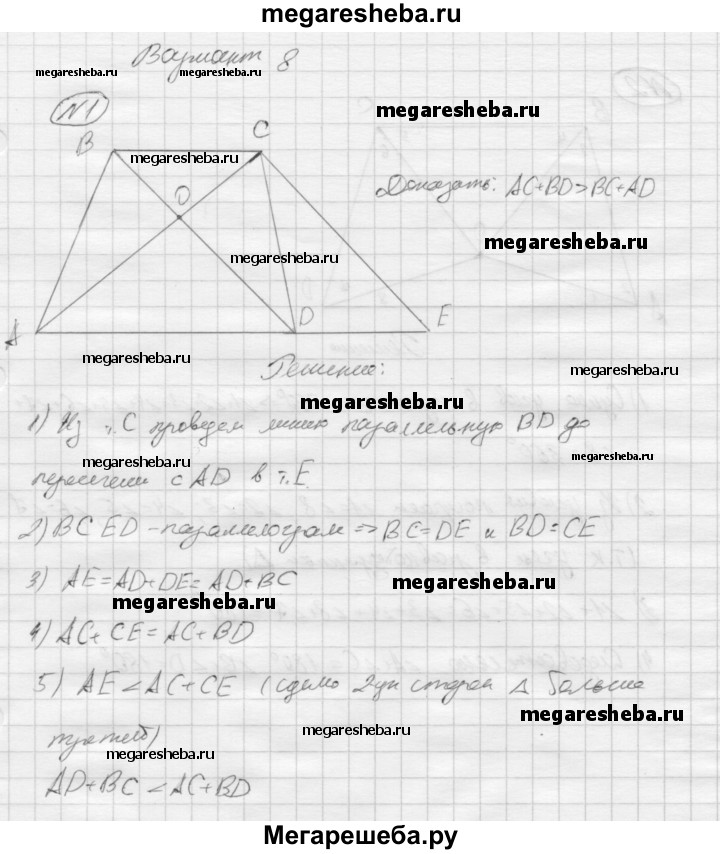 megaresheba.ru
Вариант 8
megaresheba.ru
megaresheba.ru
№1
megaresheba.ru
B
C
megaresheba.ru
O
Доказать: AC+BD>BC+AD
megaresheba.ru
megaresheba.ru
A
D
E
megaresheba.ru
Решение:
megaresheba.ru
megaresheba.ru
1) Из т. С проведем линию параллельную BD до
megaresheba.ru
megaresheba.ru
пересечения с AD в т. E
2) BCED - параллелограм => BC=DE и BD=CE
3) AE=AD+DE=AD+BC
megaresheba.ru
megaresheba.ru
4) AC+CE=AC+BD
5) AE<AC+CE (сумма 2ух сторон Δ больше
megaresheba.ru
третьей)
megaresheba.ru
megaresheba.ru
AD+BC<AC+BD
Мегарешеба.ру